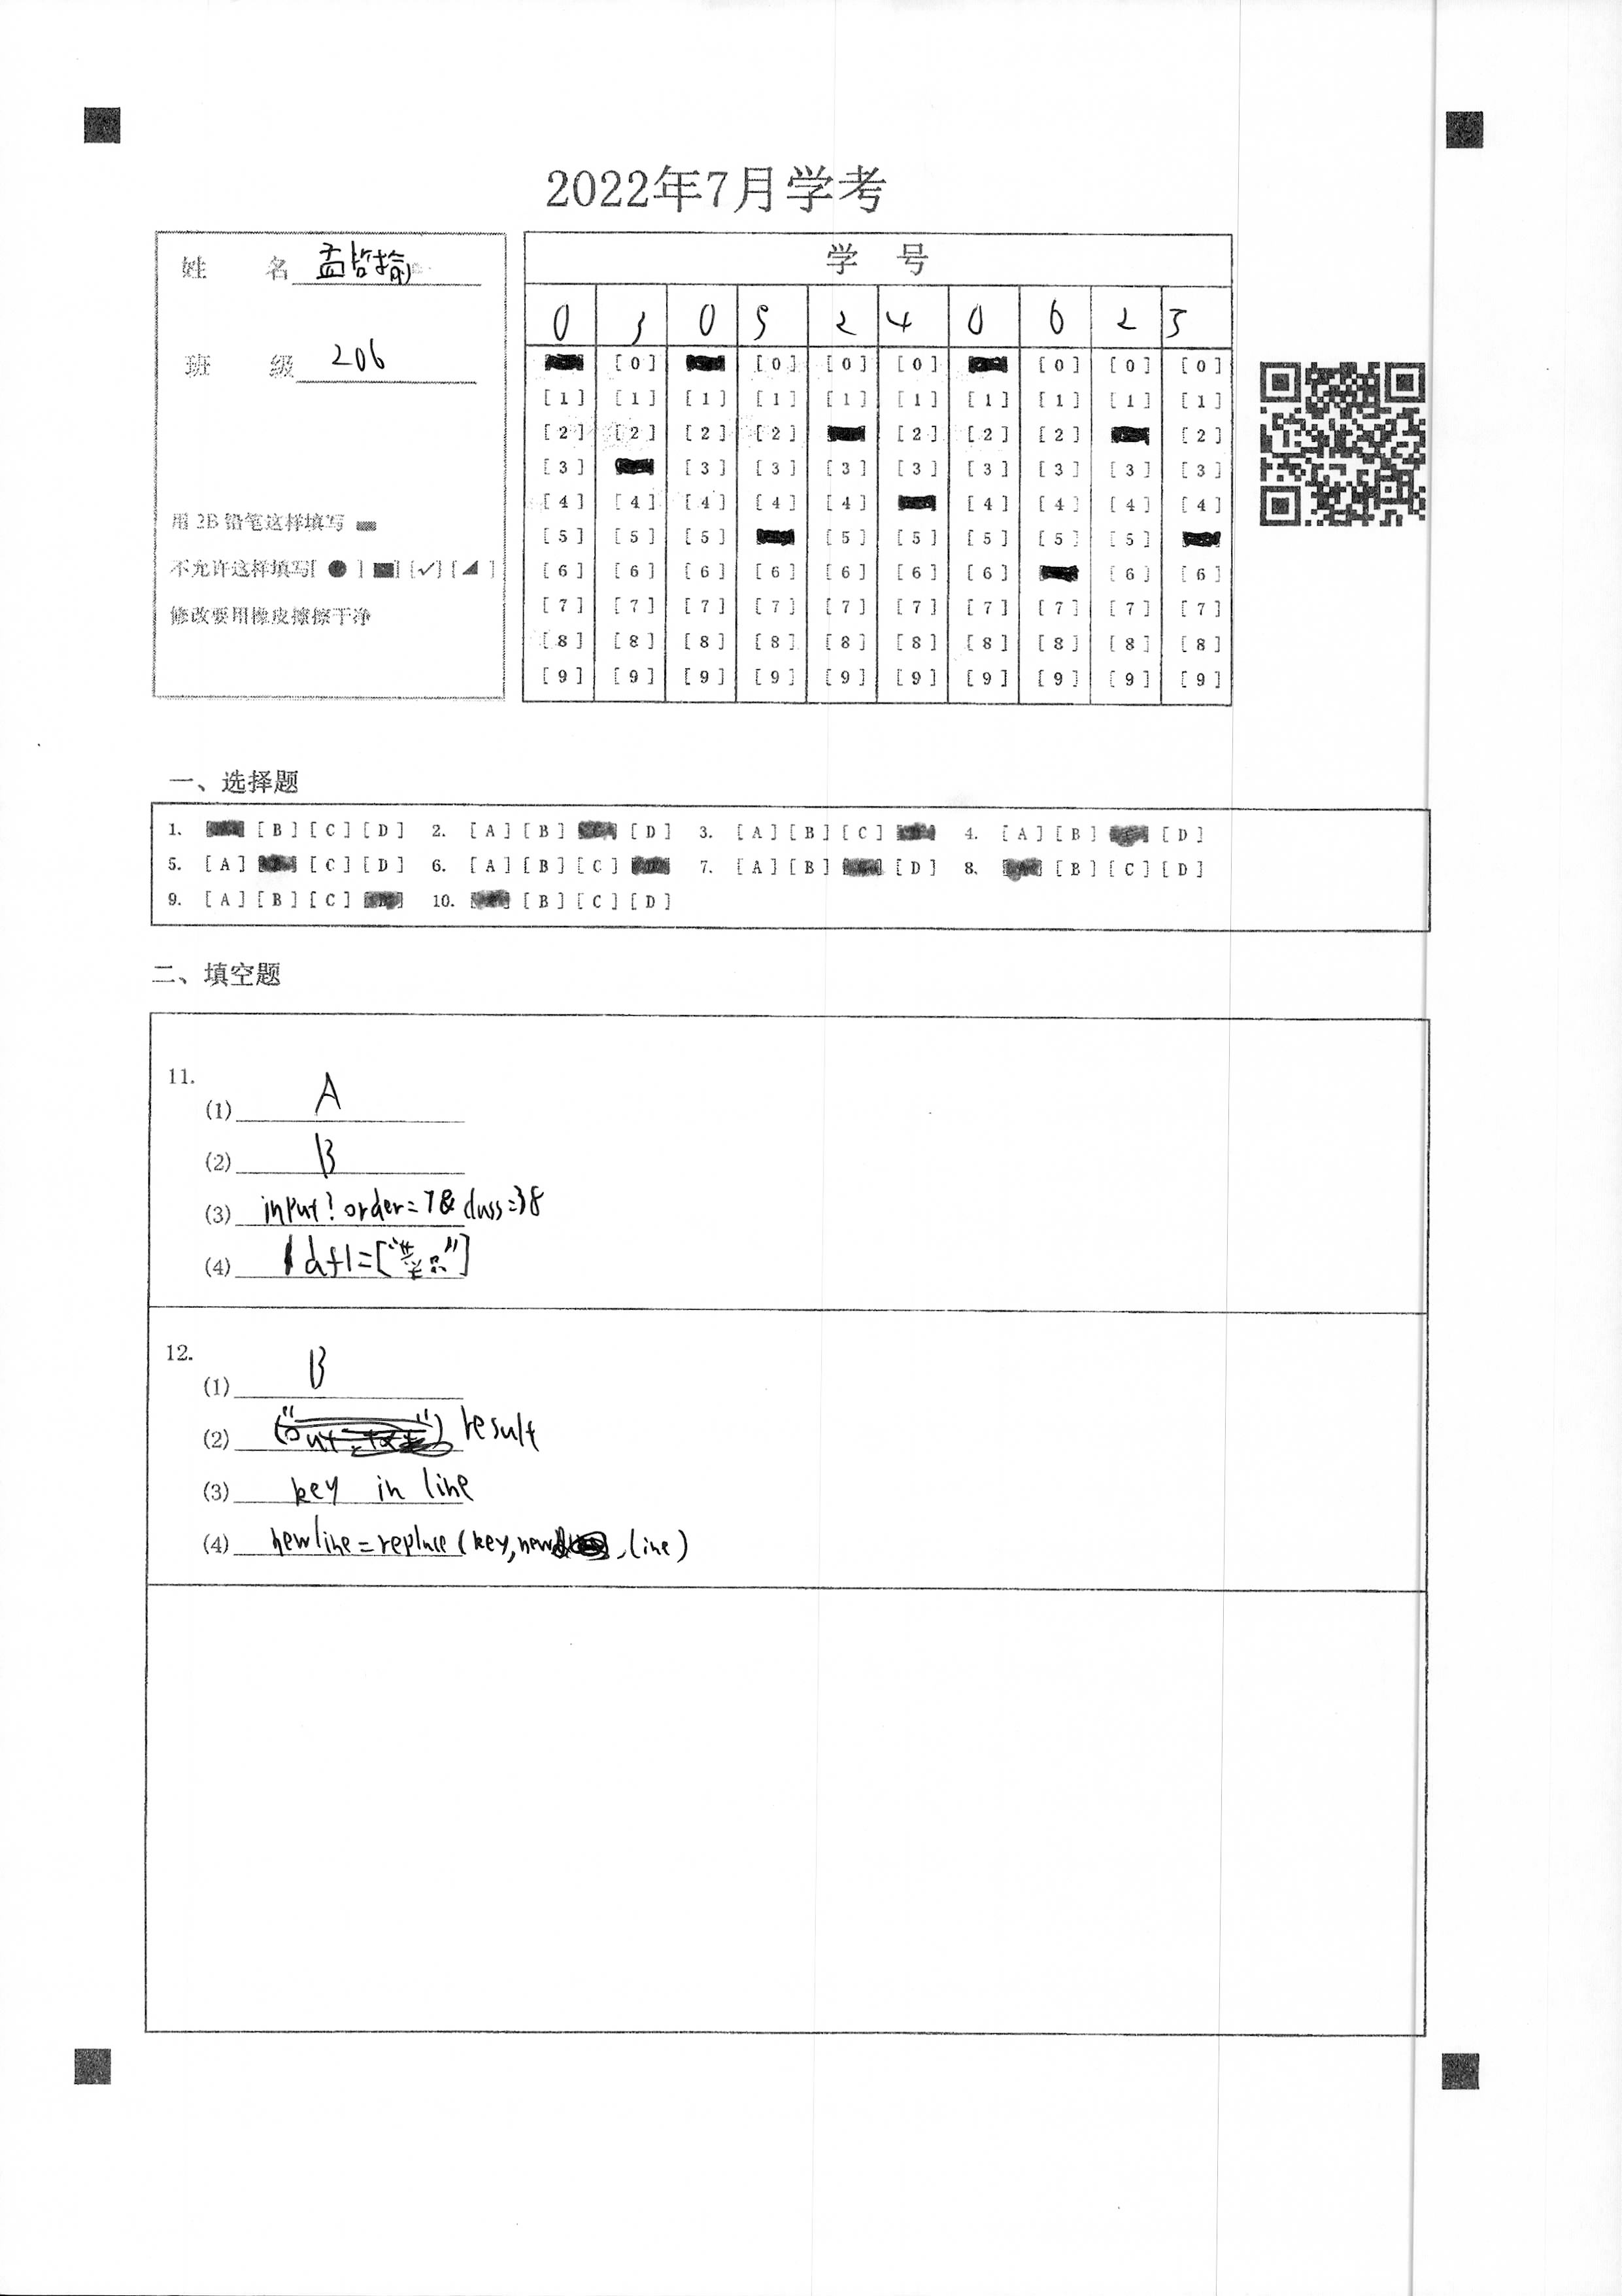 2022年7月学考
姓 名 孟哲揄
班 级 206
用 2B 铅笔这样填写
不允许这样填写[ ● ] [■] [✓] [◢]
修改要用橡皮擦擦干净
学 号
0 3 0 5 2 4 0 6 2 5
[0] [0] [0] [0] [0] [0] [0]
[1] [1] [1] [1] [1] [1] [1] [1] [1] [1]
[2] [2] [2] [2] [2] [2] [2] [2]
[3] [3] [3] [3] [3] [3] [3] [3] [3]
[4] [4] [4] [4] [4] [4] [4] [4] [4]
[5] [5] [5] [5] [5] [5] [5] [5]
[6] [6] [6] [6] [6] [6] [6] [6] [6]
[7] [7] [7] [7] [7] [7] [7] [7] [7] [7]
[8] [8] [8] [8] [8] [8] [8] [8] [8] [8]
[9] [9] [9] [9] [9] [9] [9] [9] [9] [9]
一、选择题
1. [B] [C] [D] 2. [A] [B] [D] 3. [A] [B] [C] 4. [A] [B] [D]
5. [A] [C] [D] 6. [A] [B] [C] 7. [A] [B] [D] 8. [B] [C] [D]
9. [A] [B] [C] 10. [B] [C] [D]
二、填空题
11.
(1) A
(2) B
(3) input? order=7& class=38
(4) df1=["类
12.
(1) B
(2) result
(3) key in line
(4) newline=replace(key,new ,line)